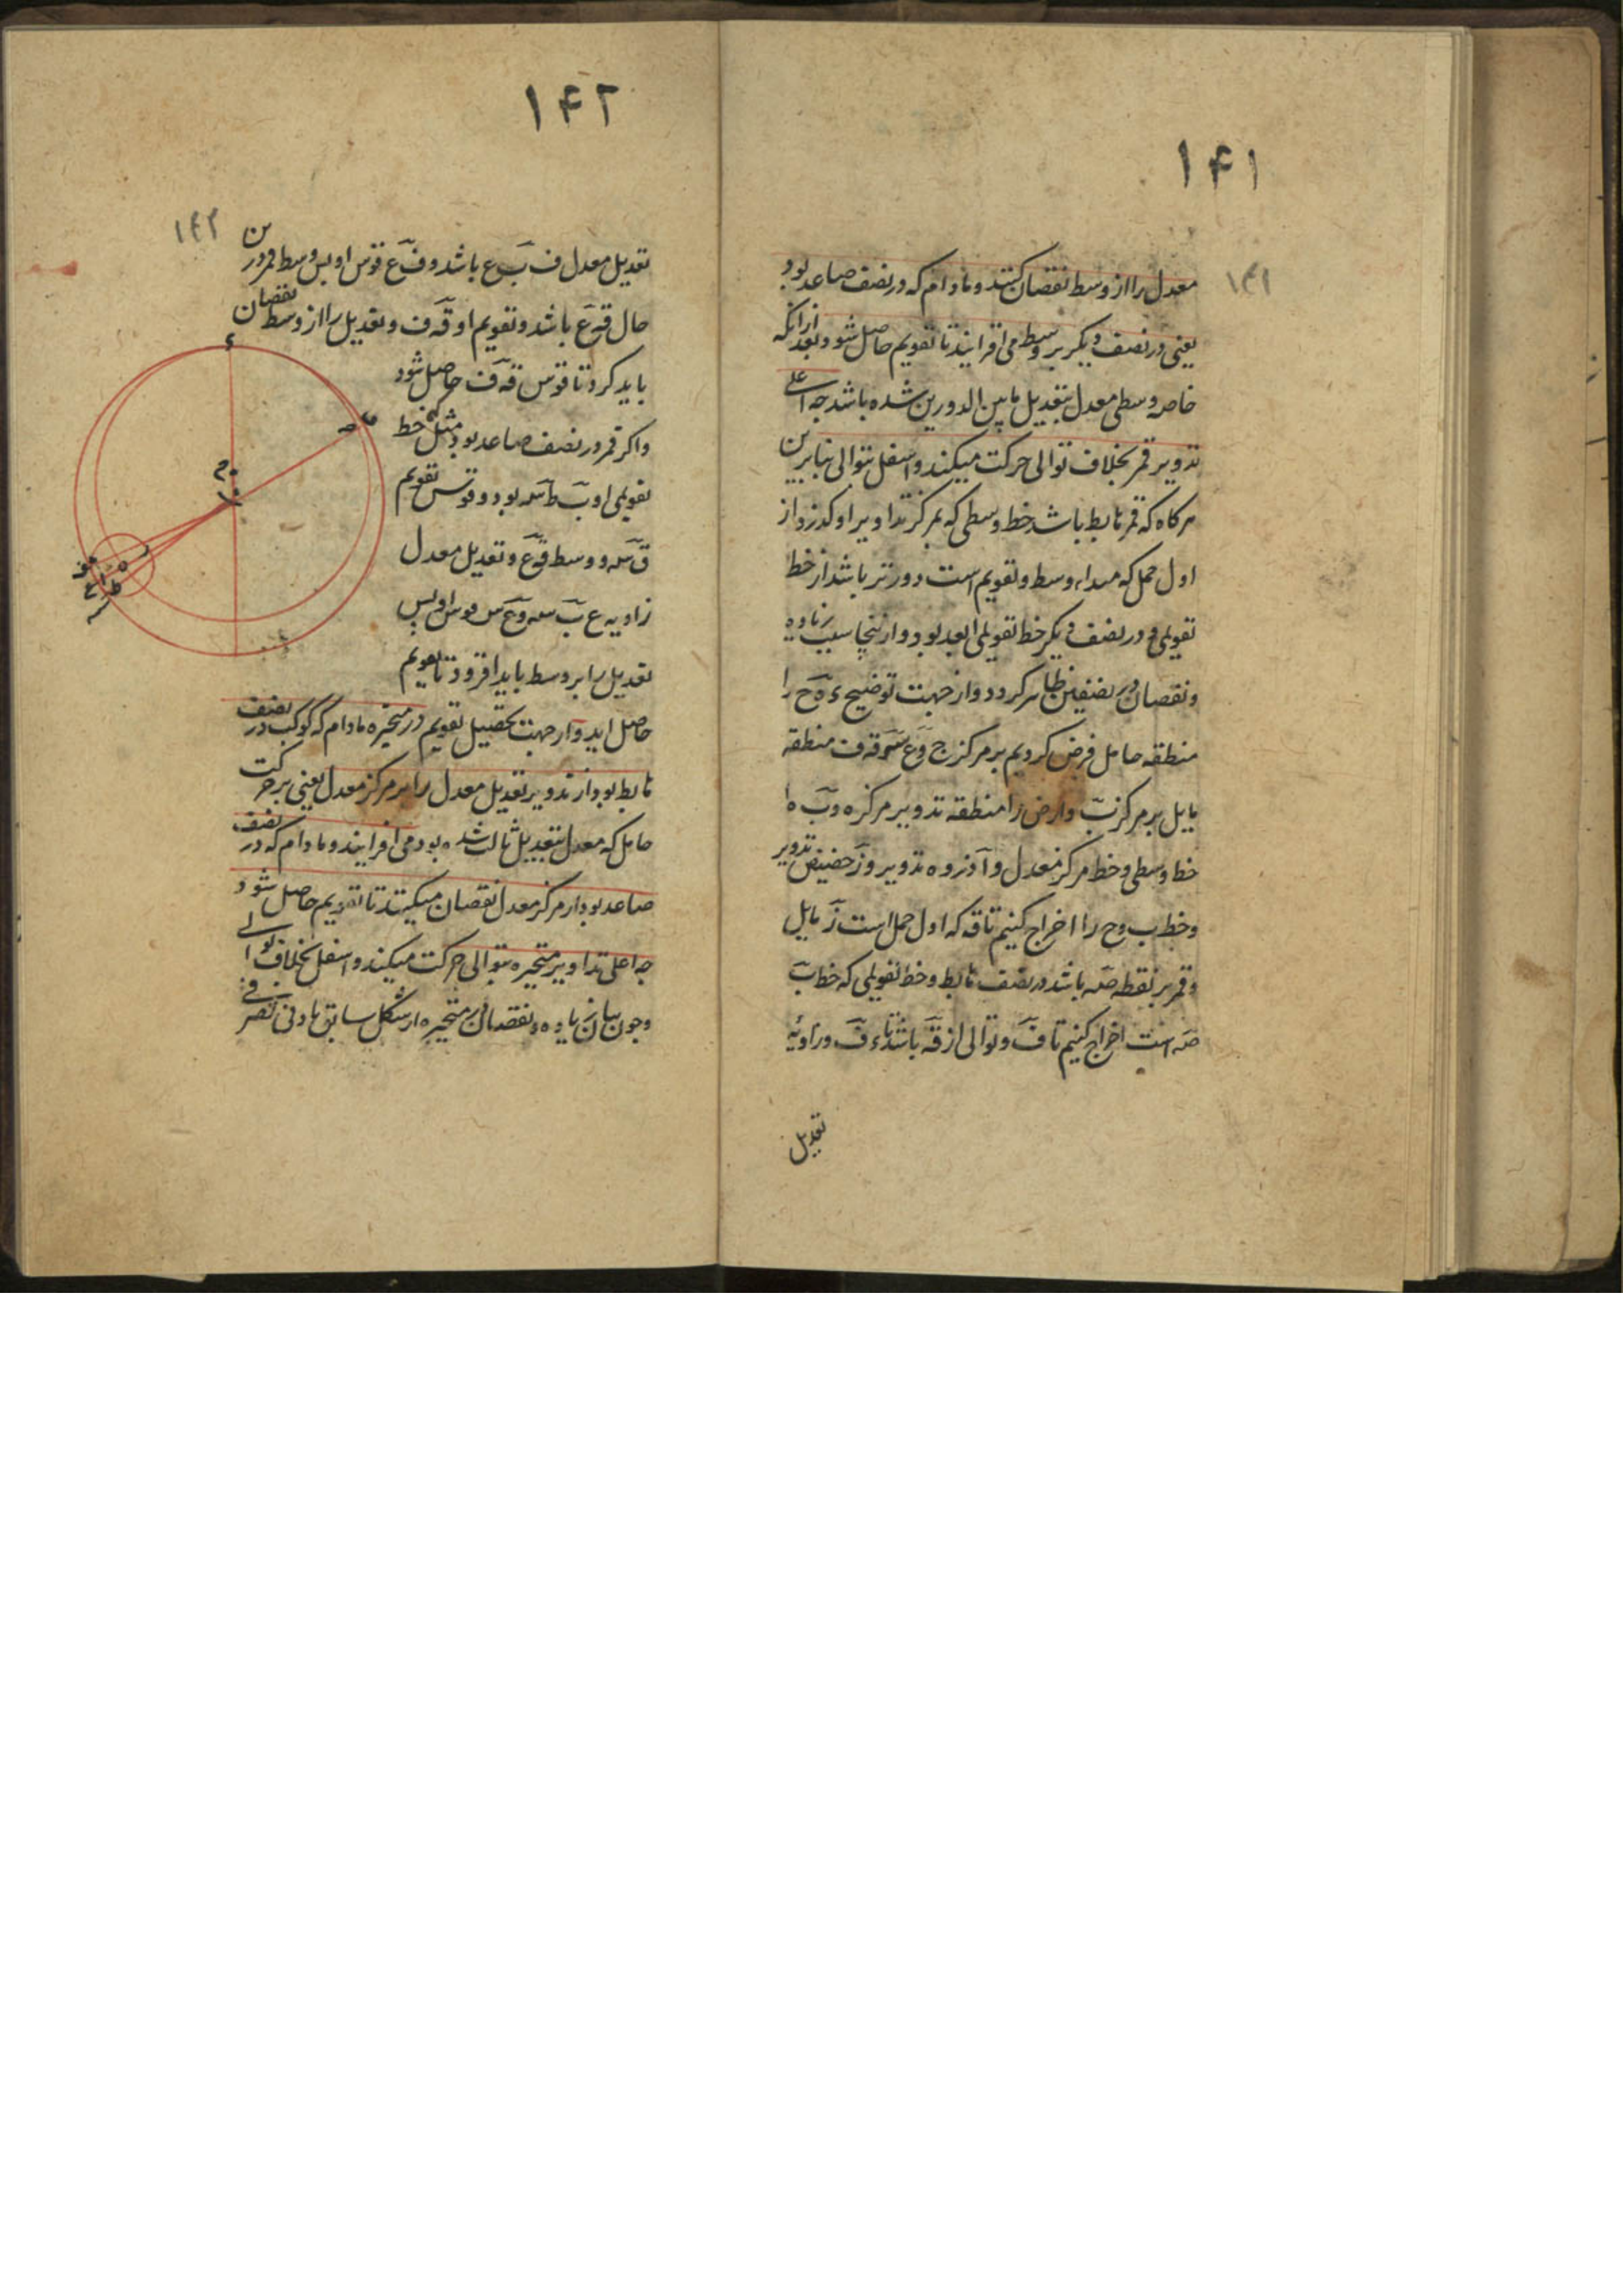 ۱۴۱
۱۴۱
معدل را از وسط نقصان کنند و مادام که در نصف صاعد بود
یعنی در نصف دیگر بر وسط می افزایند تا تقویم حاصل شود و بعد از انکه
خاصه وسطی معدل بتعدیل ما بین الدورین شده باشد چه اعلی
تدویر قمر بخلاف توالی حرکت میکند و اسفل بتوالی بنابرین
هرکاه که قمر هابط باشد خط وسطی که بمرکز تداویر او کذرد از
اول حمل که مبداء وسط و تقویم است دورتر باشد از خط
تقویمی و در نصف دیکر خط تقویمی ابعد بود و از ینجا سبب زیاده
و نقصان در نصفین ظاهر کردد و از جهت توضیح ءه ح را
منطقه حامل فرض کردیم بر مرکز ج و ع قه ف منطقه
مایل بر مرکز ب و ارض را منطقه تدویر بر مرکز ه و ب ه ا
خط وسطی و خط مرکز معدل و آ ذروه تدویر و ز حضیض تدویر
و خط ب وح را اخراج کنیم تا قه که اول حمل است ز مایل
و قمر بر نقطه صه باشد در نصف هابط و خط تقویمی که خط ب
صه است اخراج کنیم تا ف و توالی از قه باشد تا ء ف و زاویه
تعدیل
۱۴۲
۱۴۲
تعدیل معدل ف ب ع باشد و ف ع قوس او پس وسط قمر در ین
حال قه ع باشد و تقویم او قه ف و تعدیل را از وسط نقصان
باید کرد تا قوس قه ف حاصل شود
و اکر قمر در نصف صاعد بود مثل خط
تقویمی او ب ط سه بود و قوس تقویم
ق سه و وسط ق ع و تعدیل معدل
زاویه ع ب سه و ع س قوس او پس
تعدیل را بر وسط باید افزود تا تقویم
حاصل اید و از جهت تحصیل تقویم در متحیره مادام که کوکب در نصف
هابط بود از تدویر تعدیل معدل را بر مرکز معدل یعنی بر حرکت
حامل که معدل بتعدیل ثالث شده بود می افزایند و مادام که در نصف
صاعد بود از مرکز معدل نقصان میکنند تا تقویم حاصل شود
چه اعلی تداویر متحیره بتوالی حرکت میکند و اسفل بخلاف توالی
و چون بیان زیاده و نقصان در متحیره از شکل سابق بادنی تصرفی